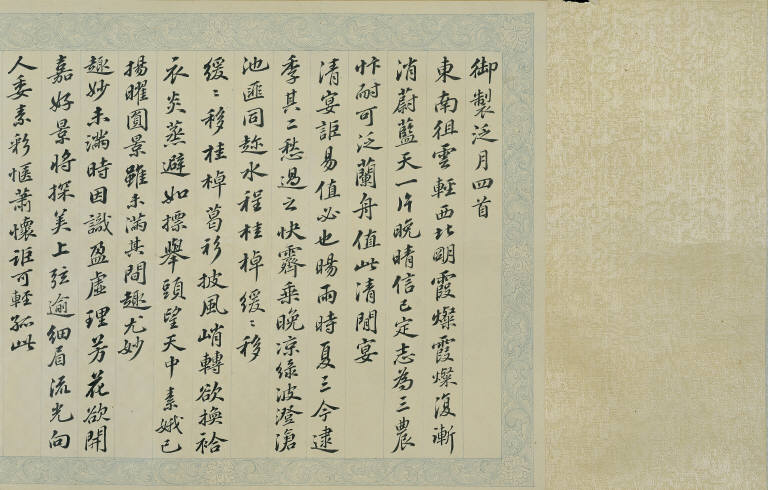 御製泛月四首
東南徂雲輕西北明霞燦霞燦復漸
消蔚藍天一片晚晴信已定志為三農
忭耐可泛蘭舟值此清閒宴
清宴詎易值必也暘雨時夏三今逮
季其二愁過之快霽乘晚涼綠波澄滄
池匪同趂水程桂棹緩〻移
緩〻移桂棹葛衫披風峭轉欲換袷
衣炎蒸避如摽舉頭望天中素娥已
揚曜圓景雖未滿其間趣尤妙
趣妙未滿時因識盈虛理芳花欲開
嘉好景將探美上弦逾細眉流光向
人委素彩愜蕭懷詎可輕孤此